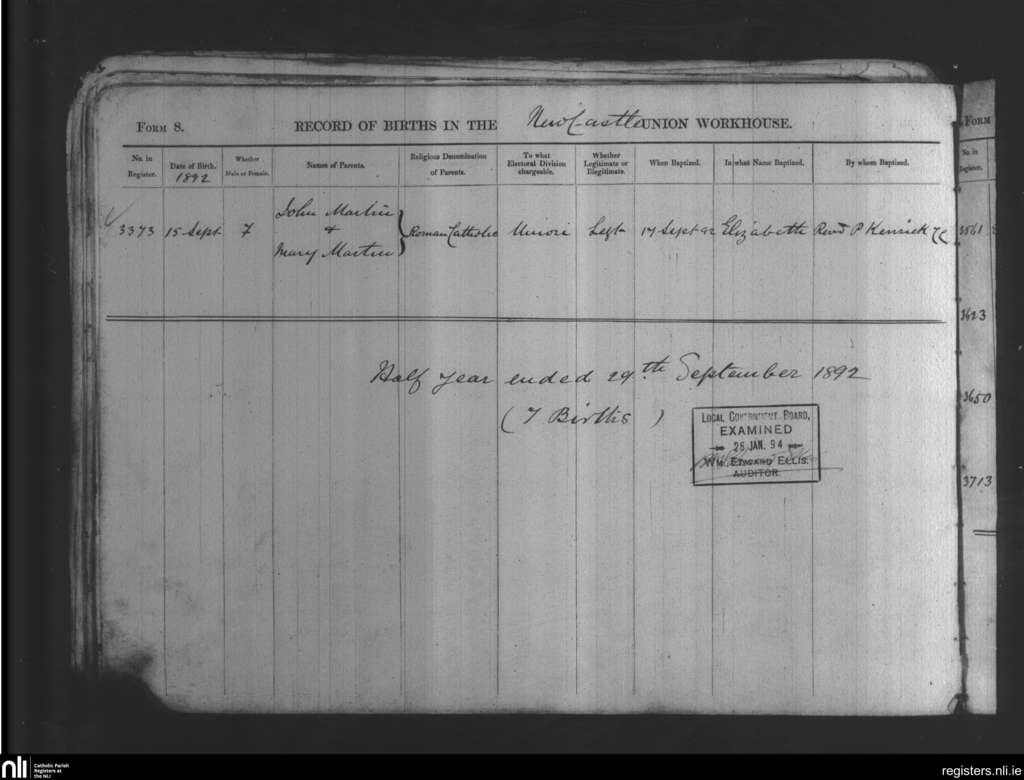 FORM 8. RECORD OF BIRTHS IN THE NewCastle UNION WORKHOUSE.
No. in Register. Date of Birth. 1892 Whether Male or Female. Names of Parents. Religious Denomination of Parents. To what Electoral Division chargeable. Whether Legitimate or Illegitimate. When Baptized. In what Name Baptized. By whom Baptized.
John Martin
3373 15 Sept F & Roman Catholic Union Legt 17 Sept 92 Elizabeth Revd P Kenrick CC
Mary Martin
Half year ended 29th September 1892
(7 Births)
LOCAL GOVERNMENT BOARD,
EXAMINED
26 JAN. 94
WM. EDWARD ELLIS.
AUDITOR.
FORM
No. in
Register.
3561
3623
3650
3713
nli Catholic Parish
Registers at
the NLI
registers.nli.ie